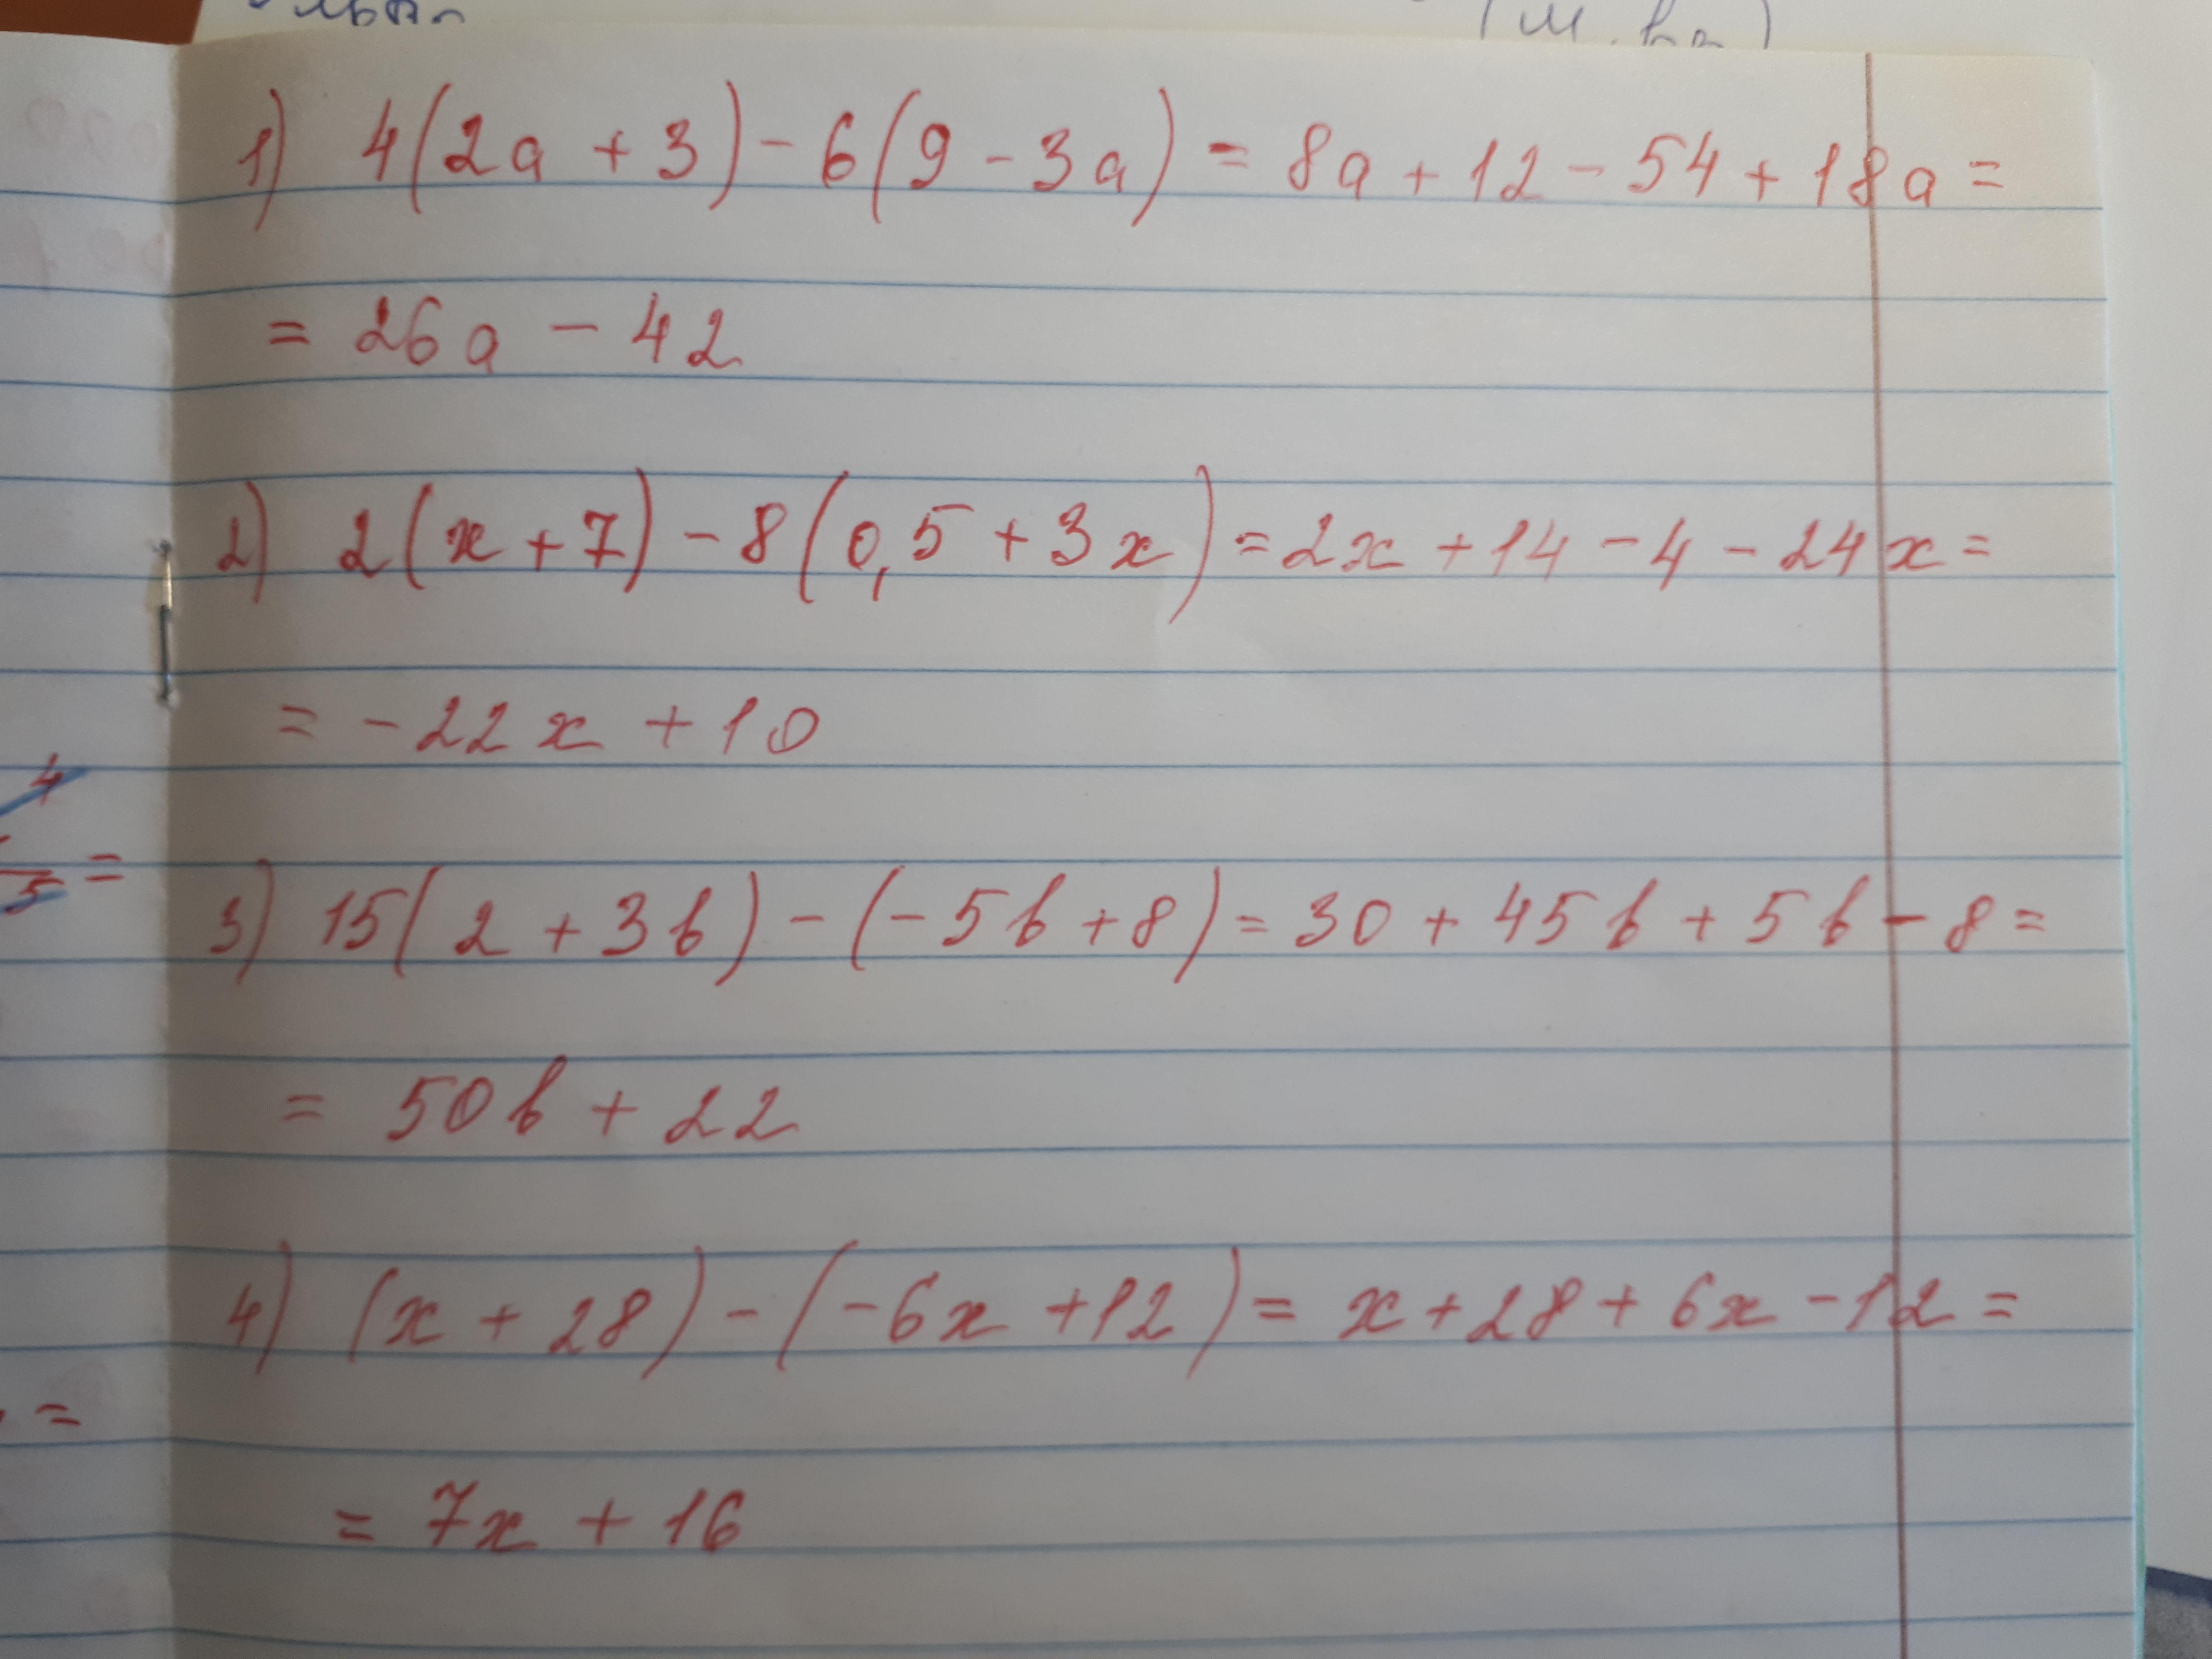 1) 4(2a + 3) - 6(9 - 3a) = 8a + 12 - 54 + 18a =
= 26a - 42
2) 2(x + 7) - 8(0,5 + 3x) = 2x + 14 - 4 - 24x =
= -22x + 10
4
5 =
3) 15(2 + 3b) - (-5b + 8) = 30 + 45b + 5b - 8 =
= 50b + 22
4) (x + 28) - (-6x + 12) = x + 28 + 6x - 12 =
=
= 7x + 16